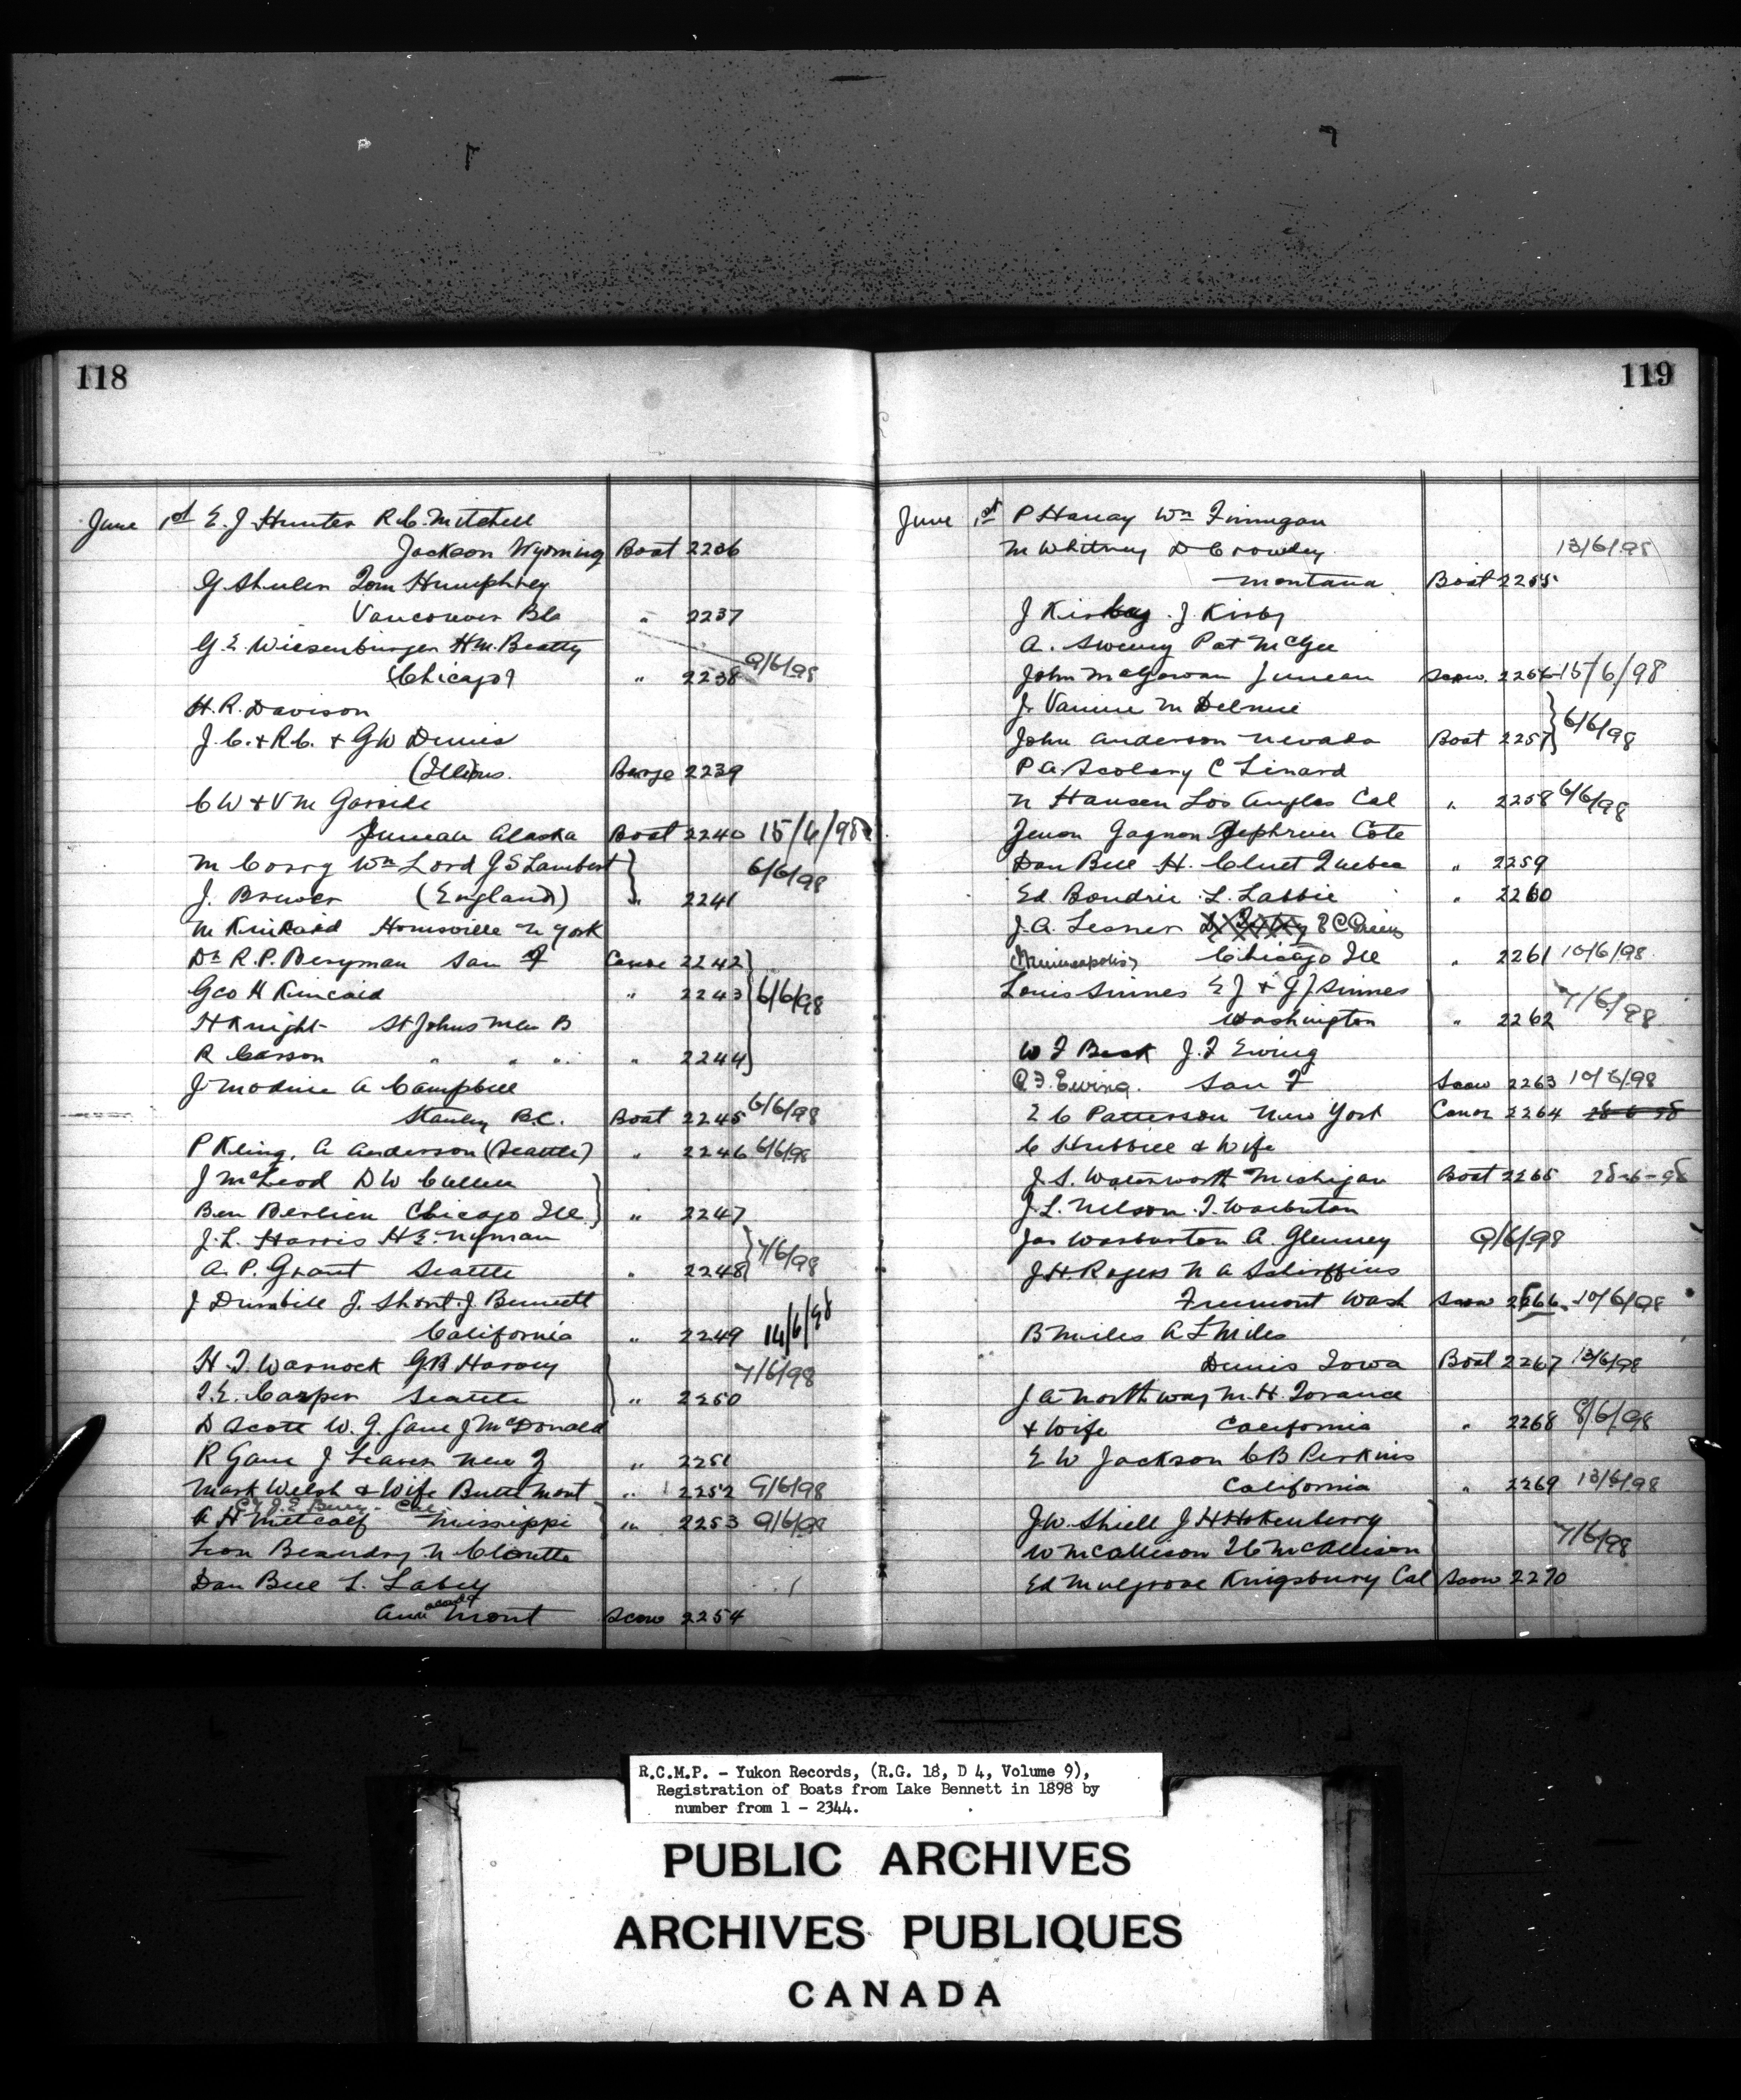 118
June 1st E. J Hunter R. C. Mitchell
Jackson Wyoming Boat 2236
G Shuler Tom Humphrey
Vancouver BC " 2237
G. E. Wiesenburger H M. Beatty
(Chicago) " 2238 9/6/98
H. R. Davison
J. C. + R C. + G W Dennis
(Illinois. Barge 2239
C W + V M Garside
Juneau Alaska Boat 2240 15/6/98
M Corry Wm Lord J S Lambert
J. Brewer (England) " 2241 6/6/98
M Kinkaid Hornsville N York
Dr R. P. Berryman San F Canoe 2242
Geo H Kincaid " 2243 6/6/98
H Knight St Johns New B
R Carson " " " " 2244
J Modine A Campbell
Stanley B.C. Boat 2245 6/6/98
P Kling, A Anderson (Seattle) " 2246 6/6/98
J McLeod D W Cullen
Ben Berlien Chicago Ill. " 2247
J. L. Harris H E. Nyman
A. P. Grant Seattle " 2248 7/6/98
J Dumbill J. Short J Bennett
California " 2249 14/6/98
H. T. Warnock G. B. Harvey
T. E. Casper Seattle " 2250 7/6/98
D Scott W. G. Gane J McDonald
R Gane J Leaver New Z " 2251
Mark Welsh & Wife Butte Mont " 2252 9/6/98
J. E Cal
A H Metcalf Missippi " 2253 9/6/98
Leon Beaudry N Clouette
Dan Bell L. Labey
Mont Scow 2254
119
June 1st P Haray Wm Finnegan
M Whitney D Crowley 13/6/98
Montana Boat 2255
J Kirby J Kirby
A. Sweney Pat McGee
John McGowan Juneau Scow. 2256 15/6/98
J. Vanine M Delmue
John Anderson Nevada Boat 2257 6/6/98
P A. Scolary C Linard
N Hansen Los Angles Cal " 2258 6/6/98
Gagnon Cote
Dan Bell H. Cluet Quebec " 2259
Ed. Boudrie L. Labbie " 2260
J. A. Lesner
(Minneapolis) Chicago Ill " 2261 10/6/98
Louis Sinnes E J + G J Sinnes
Washington " 2262 7/6/98
W F Beck J. F Ewing
C. F. Ewing. San F Scow 2263 10/6/98
Z C Patterson New York Canoe 2264 28-6-98
C Hubbill & Wife
J. S. Waterworth Michigan Boat 2265 28-6-98
J. L. Nelson T. Warburton
Jas Warburton A. Glenney 9/6/98
J. H. Rogers N A Schiffins
Fremont Wash Scow 2266 10/6/98
B Miles A L Miles
Dennis Iowa Boat 2267 13/6/98
J A Northway M. H. Torance
+ Wife California " 2268 8/6/98
E W Jackson C B Perkins
California " 2269 13/6/98
J. W. Shiell J H Hokenberry
W McAllison McAllison 7/6/98
Ed Mulgrove Kingsbury Cal Scow 2270
R.C.M.P. - Yukon Records, (R.G. 18, D 4, Volume 9),
Registration of Boats from Lake Bennett in 1898 by
number from 1 - 2344.
PUBLIC ARCHIVES
ARCHIVES PUBLIQUES
CANADA